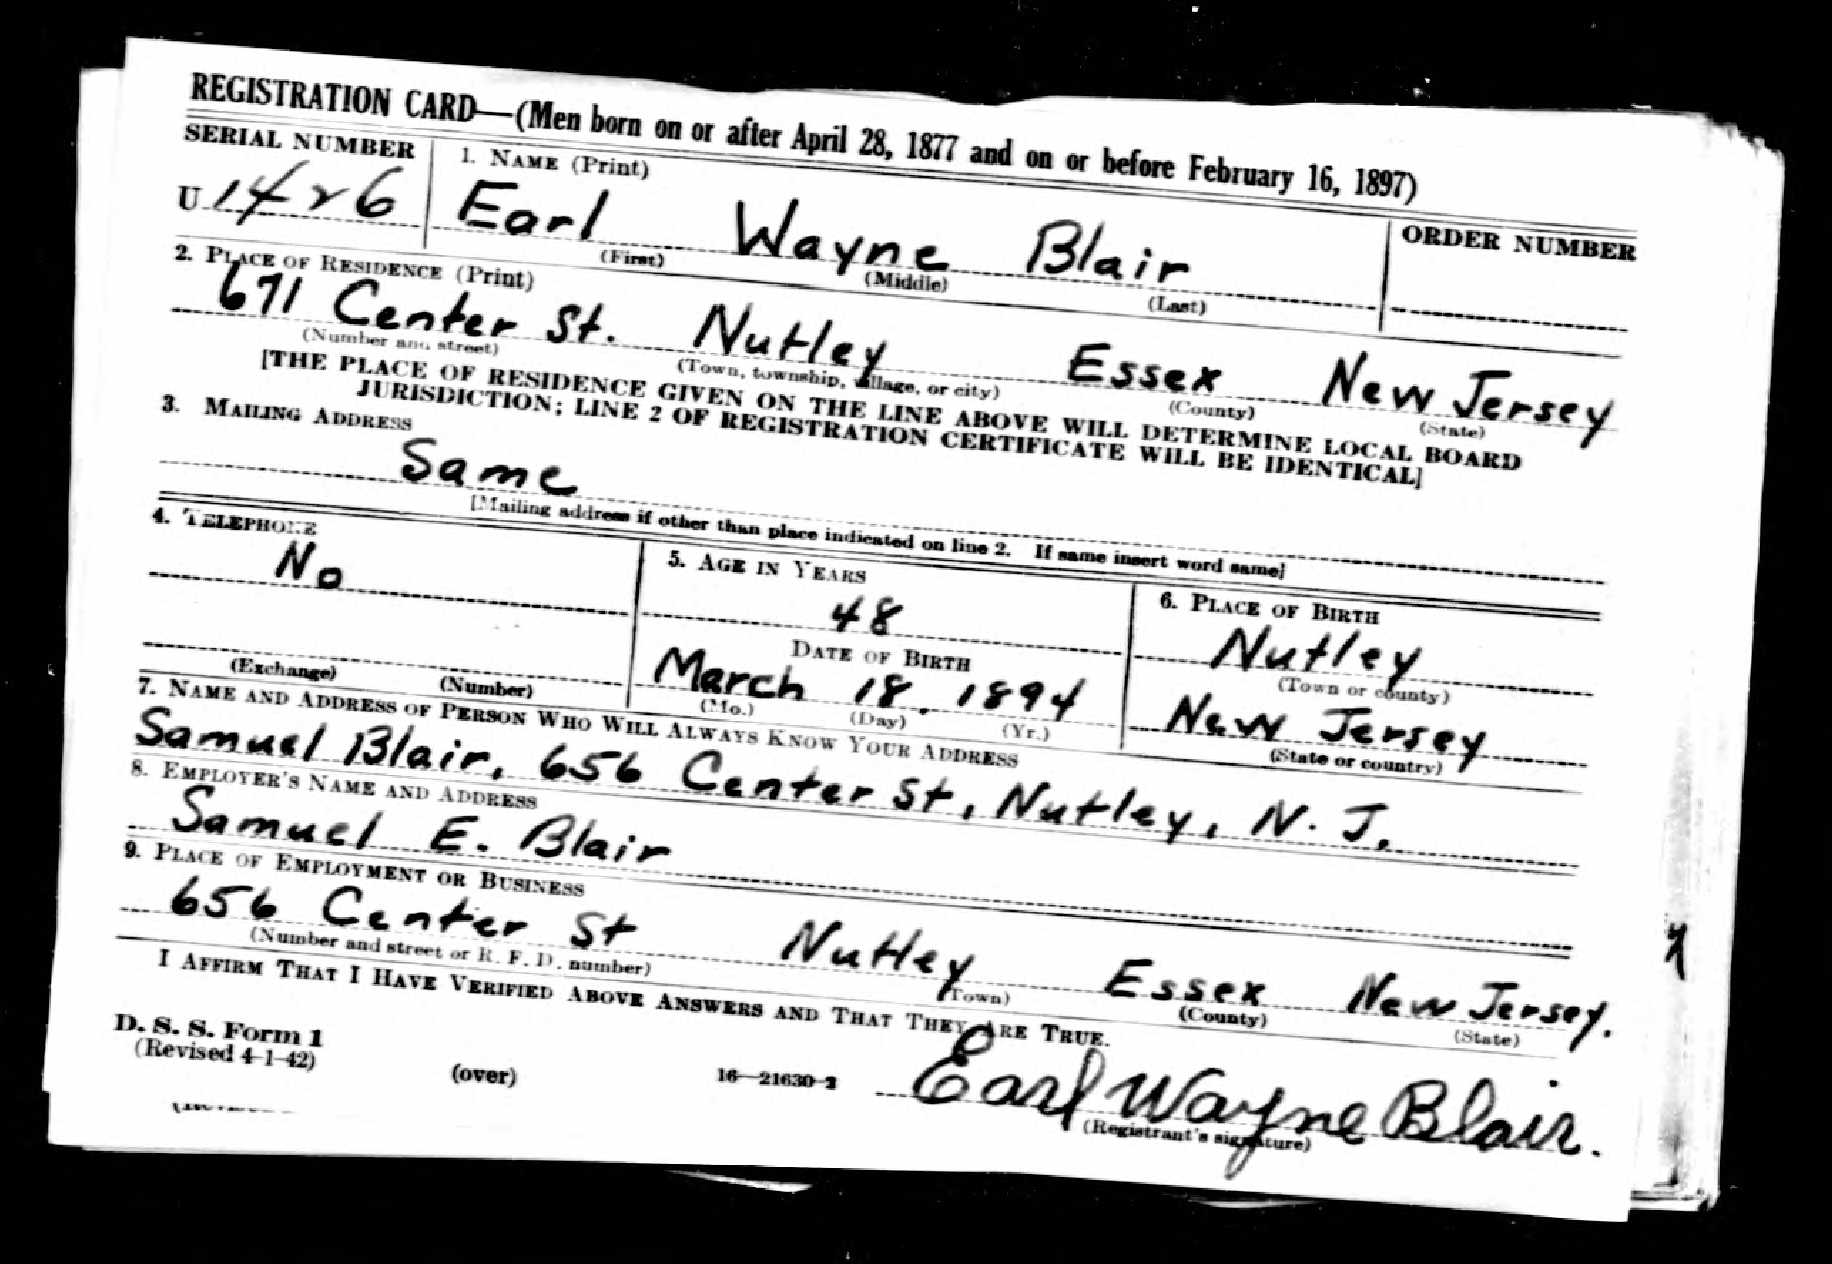 REGISTRATION CARD—(Men born on or after April 28, 1877 and on or before February 16, 1897)
SERIAL NUMBER
1. NAME (Print)
ORDER NUMBER
U 1426
Earl Wayne Blair
(First) (Middle) (Last)
2. PLACE OF RESIDENCE (Print)
671 Center St. Nutley Essex New Jersey
(Number and street) (Town, township, village, or city) (County) (State)
[THE PLACE OF RESIDENCE GIVEN ON THE LINE ABOVE WILL DETERMINE LOCAL BOARD
JURISDICTION; LINE 2 OF REGISTRATION CERTIFICATE WILL BE IDENTICAL]
3. MAILING ADDRESS
Same
[Mailing address if other than place indicated on line 2. If same insert word same]
4. TELEPHONE
No
(Exchange) (Number)
5. AGE IN YEARS
48
DATE OF BIRTH
March 18, 1894
(Mo.) (Day) (Yr.)
6. PLACE OF BIRTH
Nutley
(Town or county)
New Jersey
(State or country)
7. NAME AND ADDRESS OF PERSON WHO WILL ALWAYS KNOW YOUR ADDRESS
Samuel Blair, 656 Center St, Nutley, N. J.
8. EMPLOYER'S NAME AND ADDRESS
Samuel E. Blair
9. PLACE OF EMPLOYMENT OR BUSINESS
656 Center St Nutley Essex New Jersey.
(Number and street or R. F. D. number) (Town) (County) (State)
I AFFIRM THAT I HAVE VERIFIED ABOVE ANSWERS AND THAT THEY ARE TRUE.
D. S. S. Form 1
(Revised 4-1-42)
(over)
16—21630-2
Earl Wayne Blair.
(Registrant's signature)